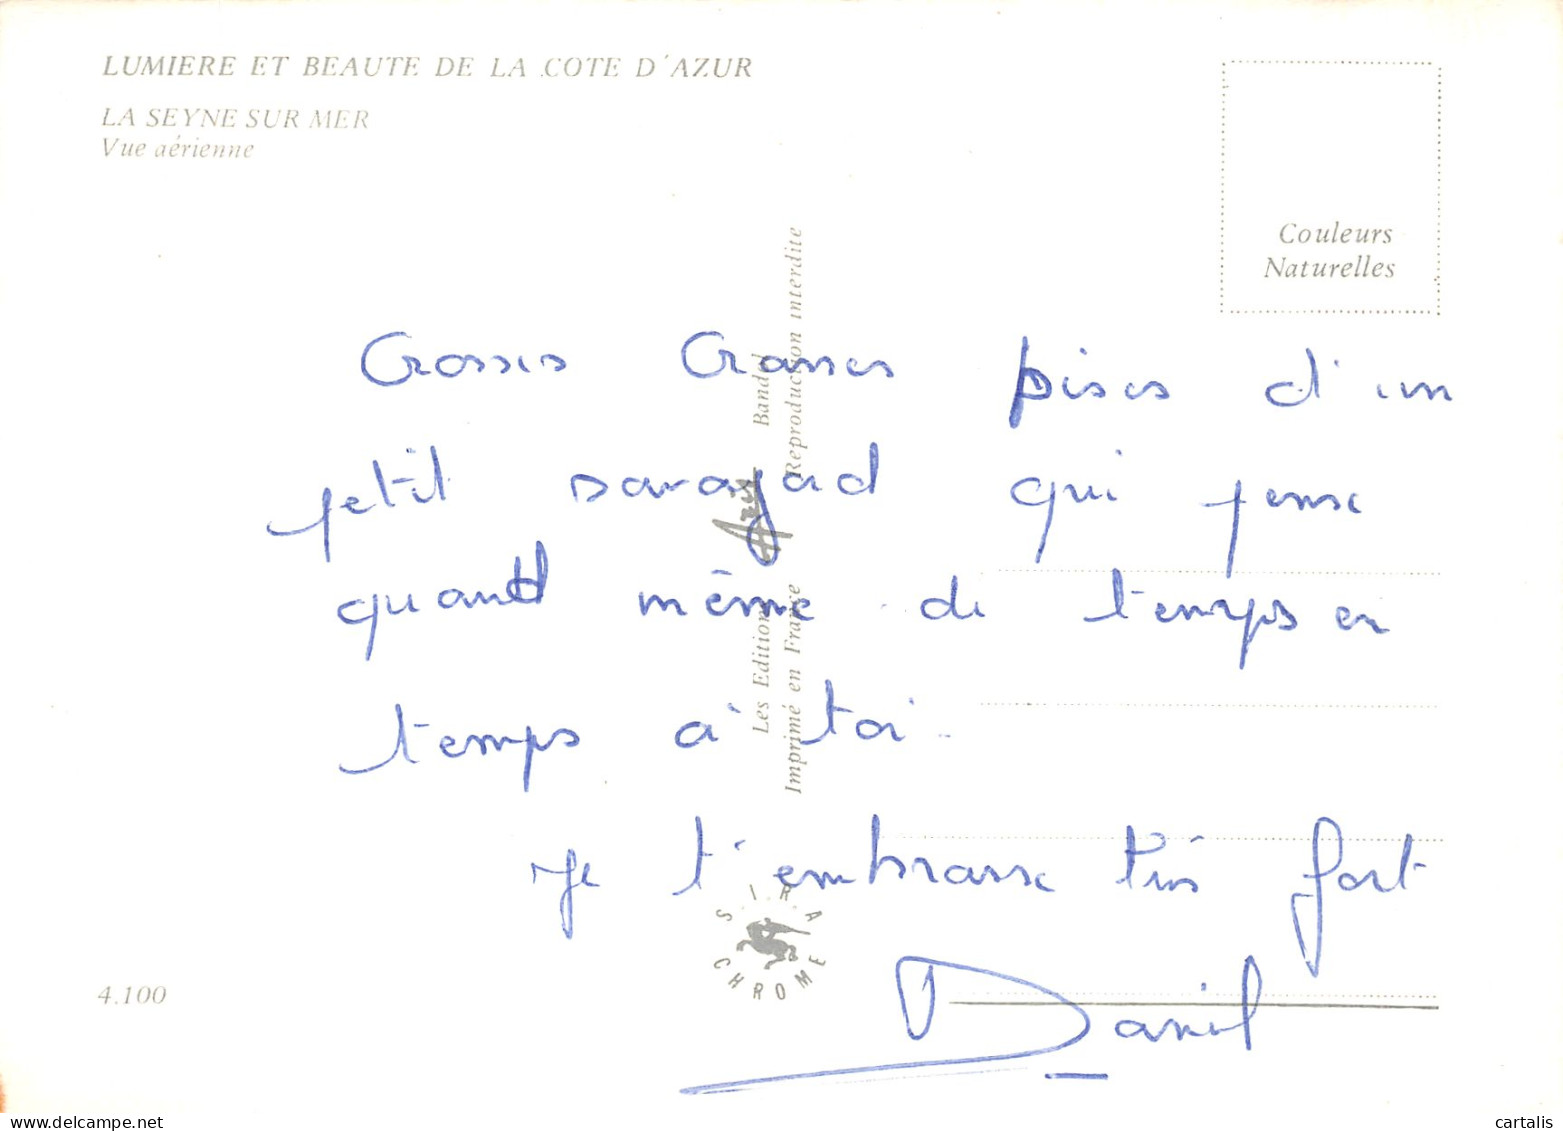 LUMIERE ET BEAUTE DE LA COTE D'AZUR
LA SEYNE SUR MER
Vue aérienne
Couleurs
Naturelles
Grosses Grasses bises d'un
petit savoyard qui pense
quand même de temps en
temps à toi..
Je t'embrasse très fort
Daniel
Les Editions Aris Bandol
Imprimé en France Reproduction interdite
SIRA
CHROME
4.100
cartalis